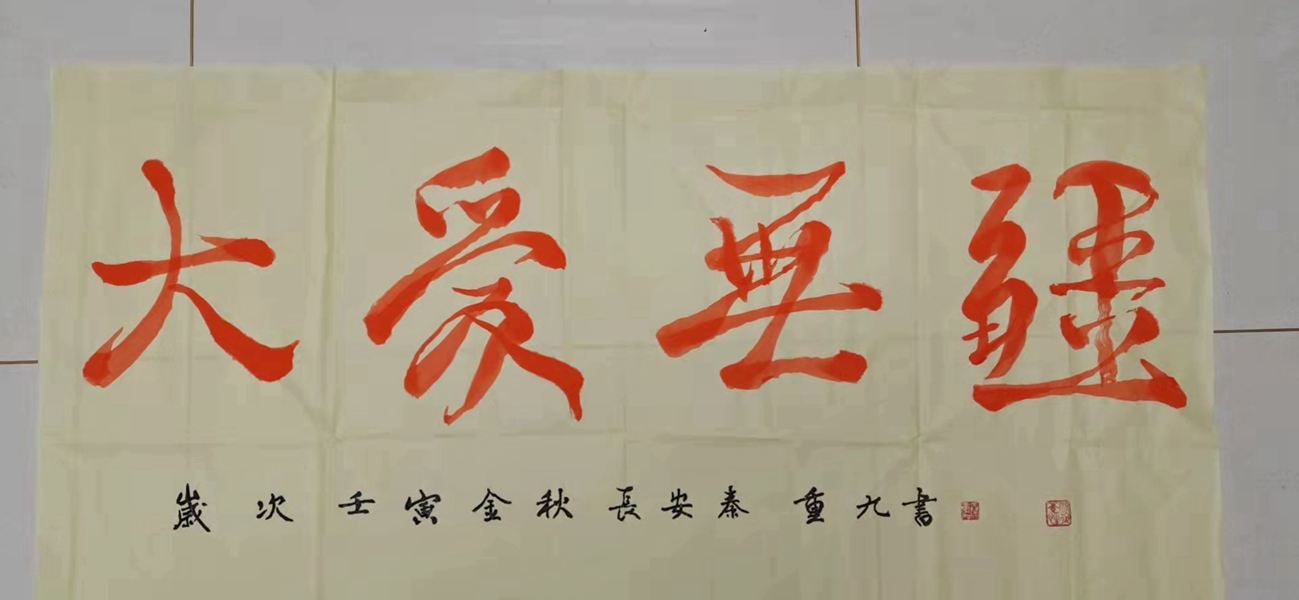 大爱無疆
歲次壬寅金秋長安秦重九書